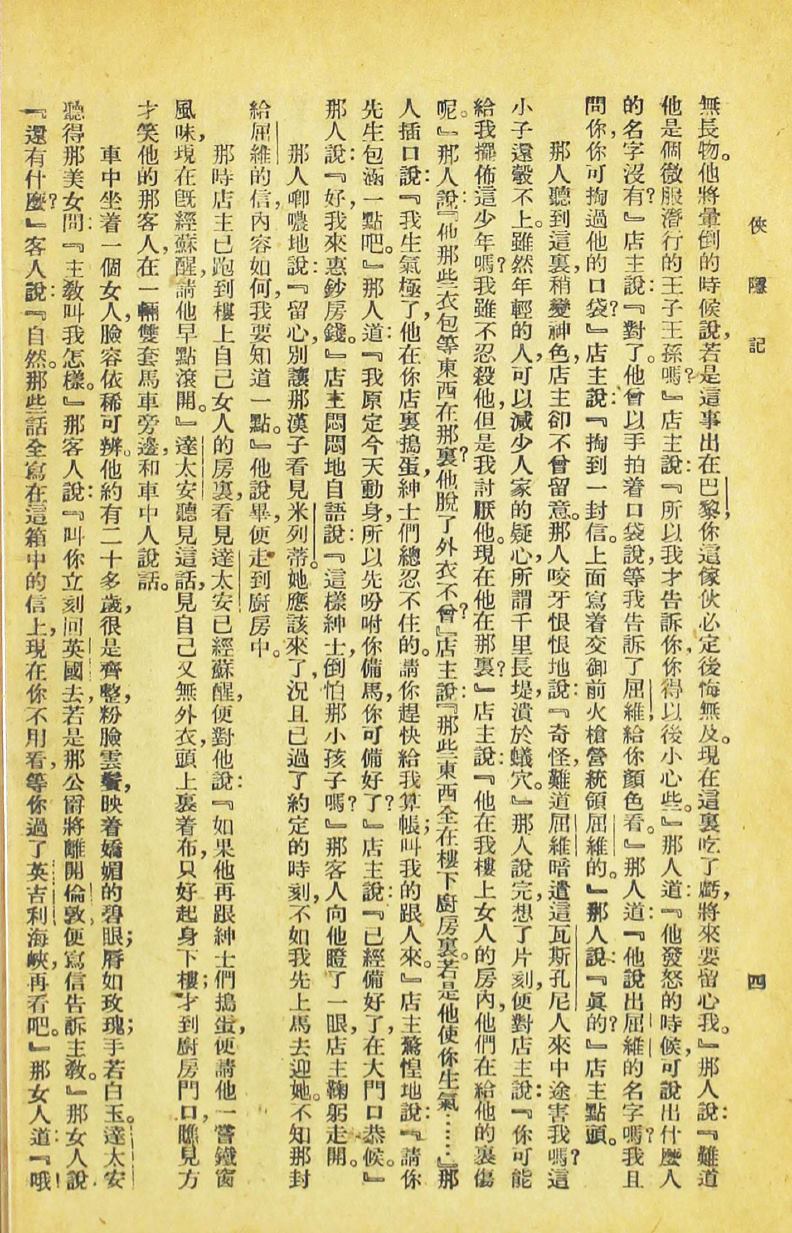 俠隱記
四
無長物。他將暈倒的時候說,若是這事出在巴黎,你這傢伙必定後悔無及。現在這裏吃了虧,將來要留心我。』那人說:『難道
他是個微服潛行的王子王孫嗎?』店主說:『所以我才告訴你,你得以後小心些。』那人道:『他發怒的時候,可說出什麼人
的名字沒有?』店主說:『對了。他曾以手拍着口袋說,等我告訴了屈維,給你顏色看。』那人道:『他說出屈維的名字嗎?我且
問你,你可掏過他的口袋?』店主說:『掏到一封信。上面寫着交御前火槍營統領屈維的。』那人說:『眞的?』店主點頭。
那人聽到這裏,稍變神色,店主卻不曾留意。那人咬牙恨恨地說:『奇怪,難道屈維暗遣這瓦斯孔尼人來中途害我嗎?這
小子還彀不上。雖然年輕的人,可以減少人家的疑心,所謂千里長堤,潰於蟻穴。』那人說完,想了片刻,便對店主說:『你可能
給我擺佈這少年嗎?我雖不忍殺他,但是我討厭他。現在他在那裏?』店主說:『他在我樓上女人的房內,他們在給他的裏傷
呢。』那人說:『他那些衣包等東西在那裏?他脫了外衣不曾?』店主說:『那些東西全在樓下廚房裏。若是他使你生氣……』那
人插口說:『我生氣極了,他在你店裏搗蛋,紳士們總忍不住的。請你趕快給我算帳;叫我的跟人來。』店主驚惶地說:『請你
先生包涵一點吧。』那人道:『我原定今天動身,所以先吩咐你備馬,你可備好了?』店主說:『已經備好了,在大門口恭候。』
那人說:『好,我來惠鈔房錢。』店主悶悶地自語說:『這樣紳士,倒怕那小孩子嗎?』那客人向他瞪了一眼,店主鞠躬走開。
那人唧噥地說:『留心,別讓那漢子看見米列蒂。她應該來了,況且已過了約定的時刻,不如我先上馬去迎她。不知那封
給屈維的信,內容如何,我要知道一點。』他說畢,便走到廚房中。
那時店主已跑到樓上自己女人的房裏,看見達太安已經蘇醒,便對他說:『如果他再跟紳士們搗蛋,便請他一嘗鐵窗
風味,現在旣經蘇醒,請他早點滾開。』達太安聽見這話,見自己又無外衣,頭上裹着布,只好起身下樓;才到廚房門口,瞧見方
才笑他的那客人,在一輛雙套馬車旁邊,和車中人說話。
車中坐着一個女人,臉容依稀可辨。他約有二十多歲,很是齊整,粉臉雲鬢,映着嬌媚的碧眼;脣如玫瑰;手若白玉。達太安
聽得那美女問:『主教叫我怎樣。』那客人說:『叫你立刻回英國去,若是那公爵將離開倫敦,便寫信告訴主教。』那女人說:
『還有什麼?』客人說:『自然。那些話全寫在這箱中的信上,現在你不用看,等你過了英吉利海峽,再看吧。』那女人道:『哦!